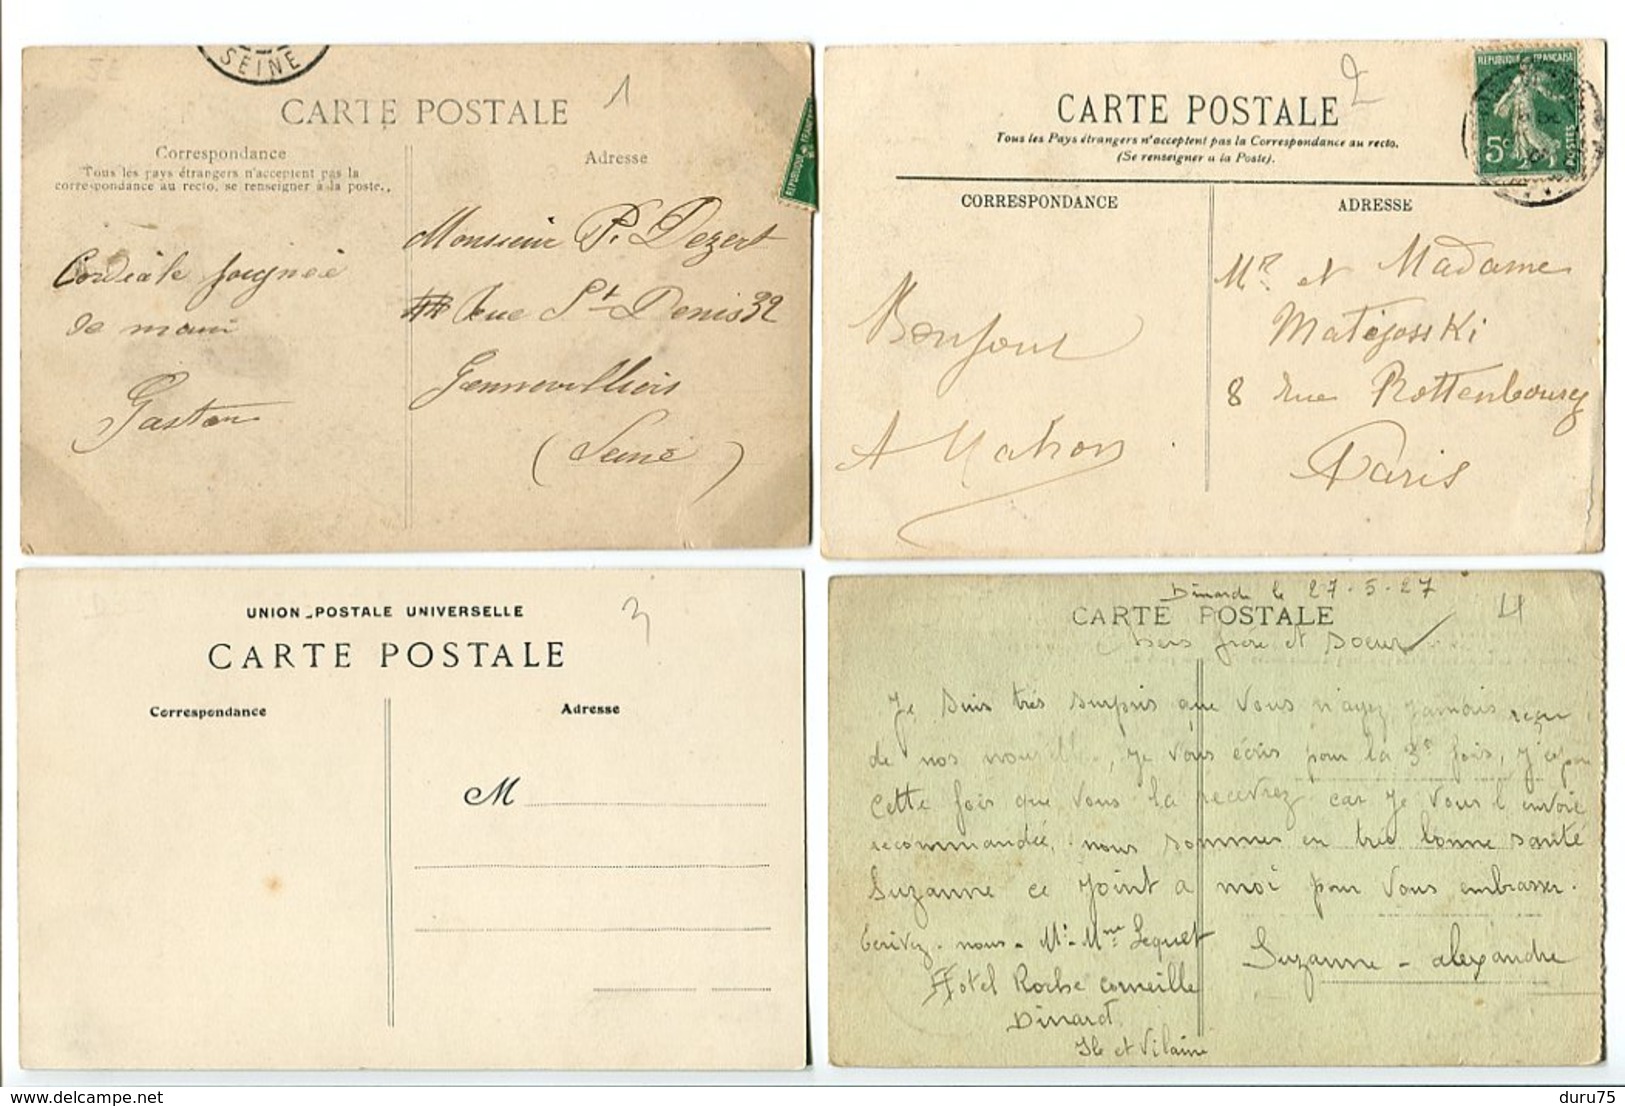 SEINE
CARTE POSTALE
1
Correspondance
Tous les pays étrangers n'acceptent pas la
correspondance au recto, se renseigner à la poste.
Adresse
Cordiale poignée
de main
Gaston
Monsieur P. Dezert
Rue St Denis 32
Gennevilliers
(Seine)
REPUBLIQUE FRANÇAISE
CARTE POSTALE
2
Tous les Pays étrangers n'acceptent pas la Correspondance au recto.
(Se renseigner a la Poste).
REPUBLIQUE FRANÇAISE
5c
POSTES
CORRESPONDANCE
ADRESSE
Bonjour
A Mahon
Mr et Madame
Matejosski
8 rue Rottenbourg
Paris
UNION POSTALE UNIVERSELLE
3
CARTE POSTALE
Correspondance
Adresse
M
Dinard le 27.5.27
CARTE POSTALE
4
chers frere et soeur
Je suis très surpris que vous n'ayez jamais reçu
de nos, je vous écris pour la 3e fois, j'espr
cette fois que vous la recevrez car je vous l envoie
recommandée, nous sommes en très bonne santé
Suzanne ce joint a moi pour vous embrasser.
Ecrivez-nous - Mr-Mme Lequet
Hotel Roche Corneille
Dinard
Ile et Vilaine
Suzanne - alexandre
www.delcampe.net
duru75